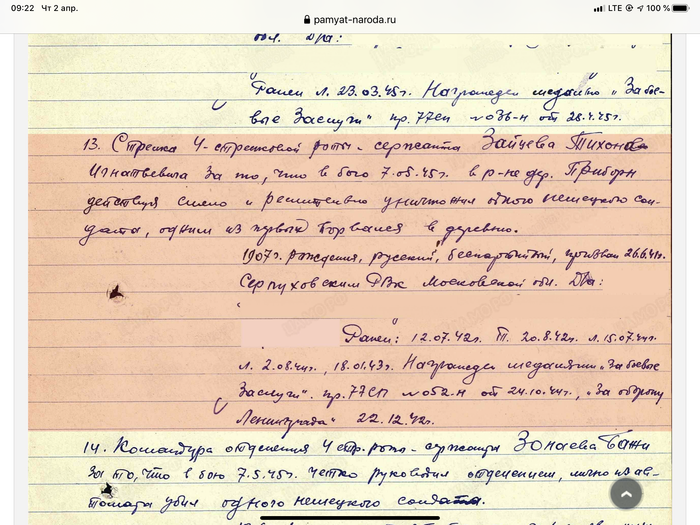 09:22 Чт 2 апр.
LTE 100 %
pamyat-naroda.ru
Ранен л. 23.03.45г. Награжден медалью „За бое-
вые Заслуги" пр. 77сп №036-н от 28.4.45г.
13. Стрелка 4-стрелковой роты - сержанта Зайцева Тихона
Игнатьевича За то, что в бою 7.05.45г. в р-не дер. Приборн
действуя смело и решительно уничтожил одного немецкого сол-
дата, одним из первых ворвался в деревню.
1907г. рождения, русский, беспартийный, призван 26.6.41г.
Серпуховским РВК Московской обл. Д/а:
Ранен: 12.07.42г. Т. 20.8.42г. л. 15.07.44г.
л. 2.08.44г., 18.01.43г. Награжден медалями „За боевые
Заслуги". пр. 77СП №052-н от 24.10.44г., „За оборону
Ленинграда" 22.12.42г.
14. Командира отделения 4 стр. роты - сержанта
За то, что в бою 7.5.45г. четко руководил отделением, лично из ав-
томата убил одного немецкого солдата.